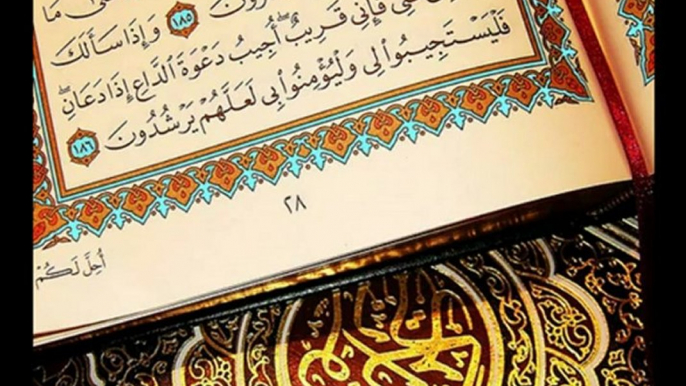 مَا
١٨٥ وَإِذَا سَأَلَكَ
فَإِنِّى قَرِيبٌ أُجِيبُ دَعْوَةَ ٱلدَّاعِ إِذَا دَعَانِ
فَلْيَسْتَجِيبُوا۟ لِى وَلْيُؤْمِنُوا۟ بِى لَعَلَّهُمْ يَرْشُدُونَ ١٨٦
٢٨
أُحِلَّ لَكُمْ